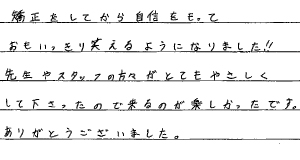 矯正をしてから自信をもって
おもいっきり笑えるようになりました!!
先生やスタッフの方々がとてもやさしく
して下さったので来るのが楽しかったです。
ありがとうございました。